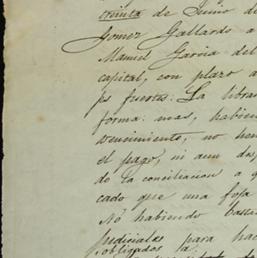 treinta de Junio de
Gomez Gallardo a
Manuel Garcia del
capital, con plazo a
ps fuertes. La libran
forma: mas, habien
vencimiento, no he
el pago, ni aun des
de la conciliacion a q
cado que una foja
No habiendo basta
judiciales para hac
obligados la